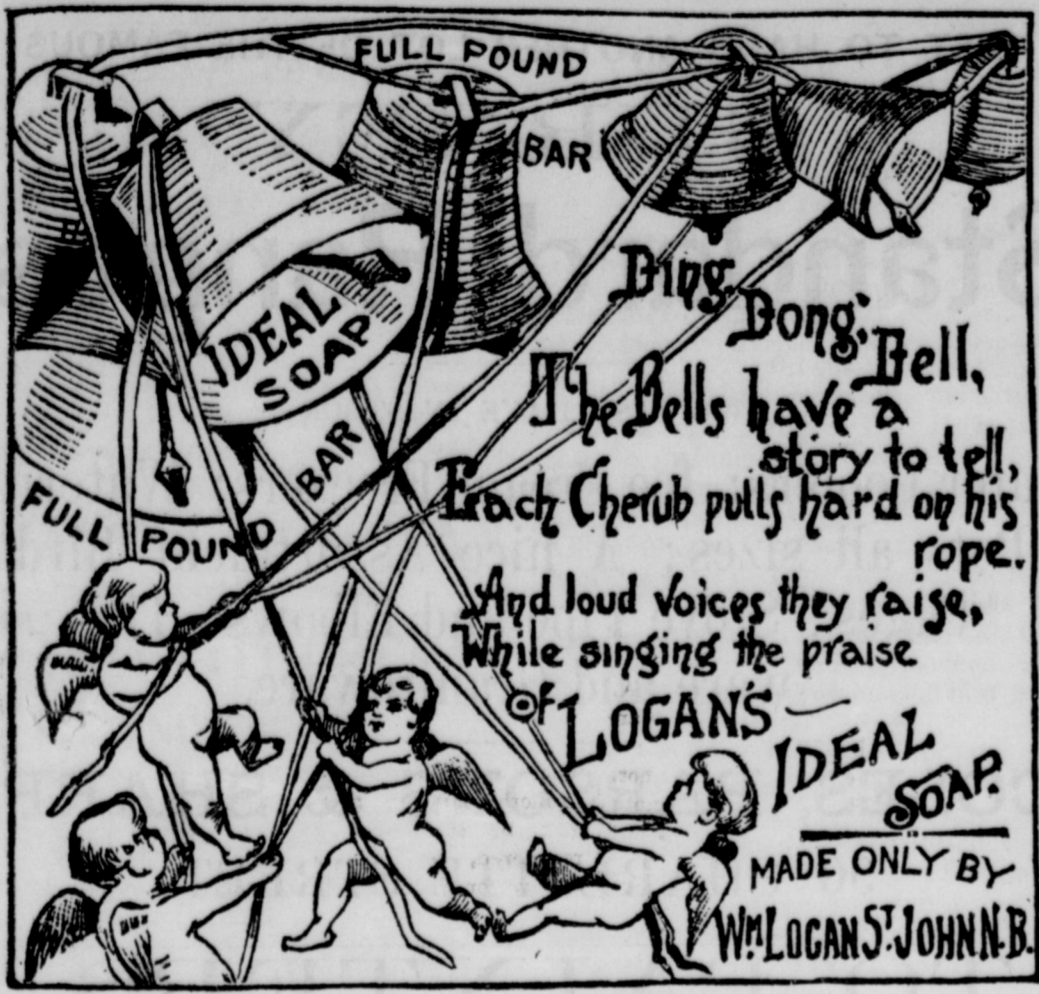 FULL POUND
BAR
IDEAL
SOAP
FULL POUND
BAR
Ding,
Dong,
Bell,
The Bells have a
story to tell,
Each Cherub pulls hard on his
rope.
And loud voices they raise,
While singing the praise
OF LOGANS
IDEAL
SOAP.
MADE ONLY BY
WM LOGAN ST. JOHN N.B.